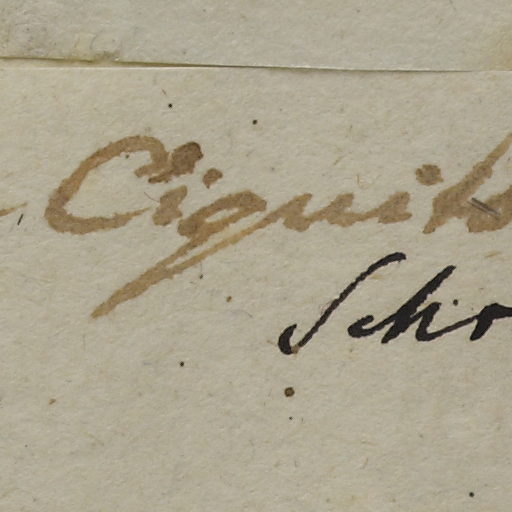 Ciquit
Schr